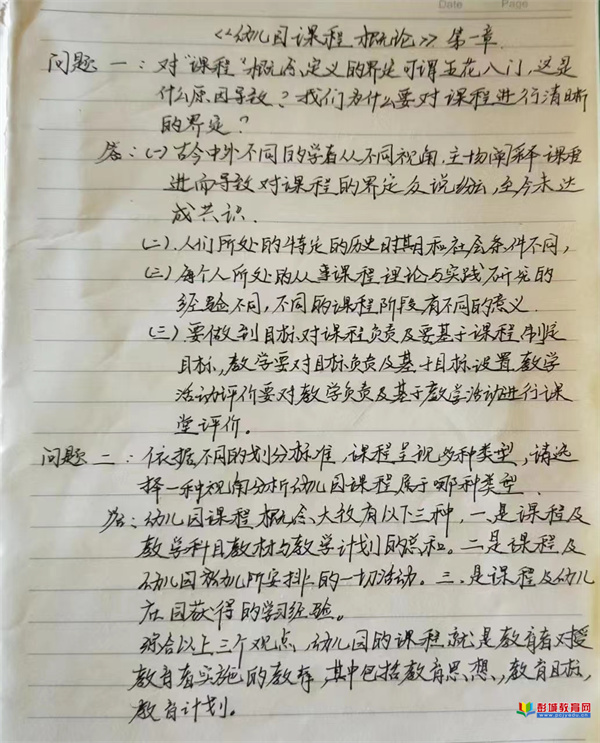 Date Page
《幼儿园课程概论》第一章
问题一：对"课程"概念、定义的界定可谓五花八门，这是
什么原因导致？我们为什么要对课程进行清晰
的界定？
答：(一)古今中外不同的学者从不同视角、主场阐释课程
进而导致对课程的界定众说纷纭，至今未达
成共识.
(二).人们所处的特定的历史时期和社会条件不同，
(三)每个人所处的从事课程理论与实践研究的
经验不同，不同的课程阶段有不同的意义.
(三)要做到目标对课程负责及要基于课程制定
目标，教学要对目标负责及基于目标设置教学
活动评价要对教学负责及基于教学活动进行课
堂评价。
问题二：依据不同的划分标准，课程呈现多种类型，请选
择一种视角分析幼儿园课程属于哪种类型.
答：幼儿园课程概念、大致有以下三种，一是课程及
教学科目教材与教学计划的总和。二是课程及
幼儿园为幼儿所安排上的一切活动。三、是课程及幼儿
在园获得的学习经验。
综合以上三个观点、幼儿园的课程就是教育者对授
教育者实施的教育，其中包括教育思想、教育目标，
教育计划。
彭城教育网
www.pcjyzx.cn